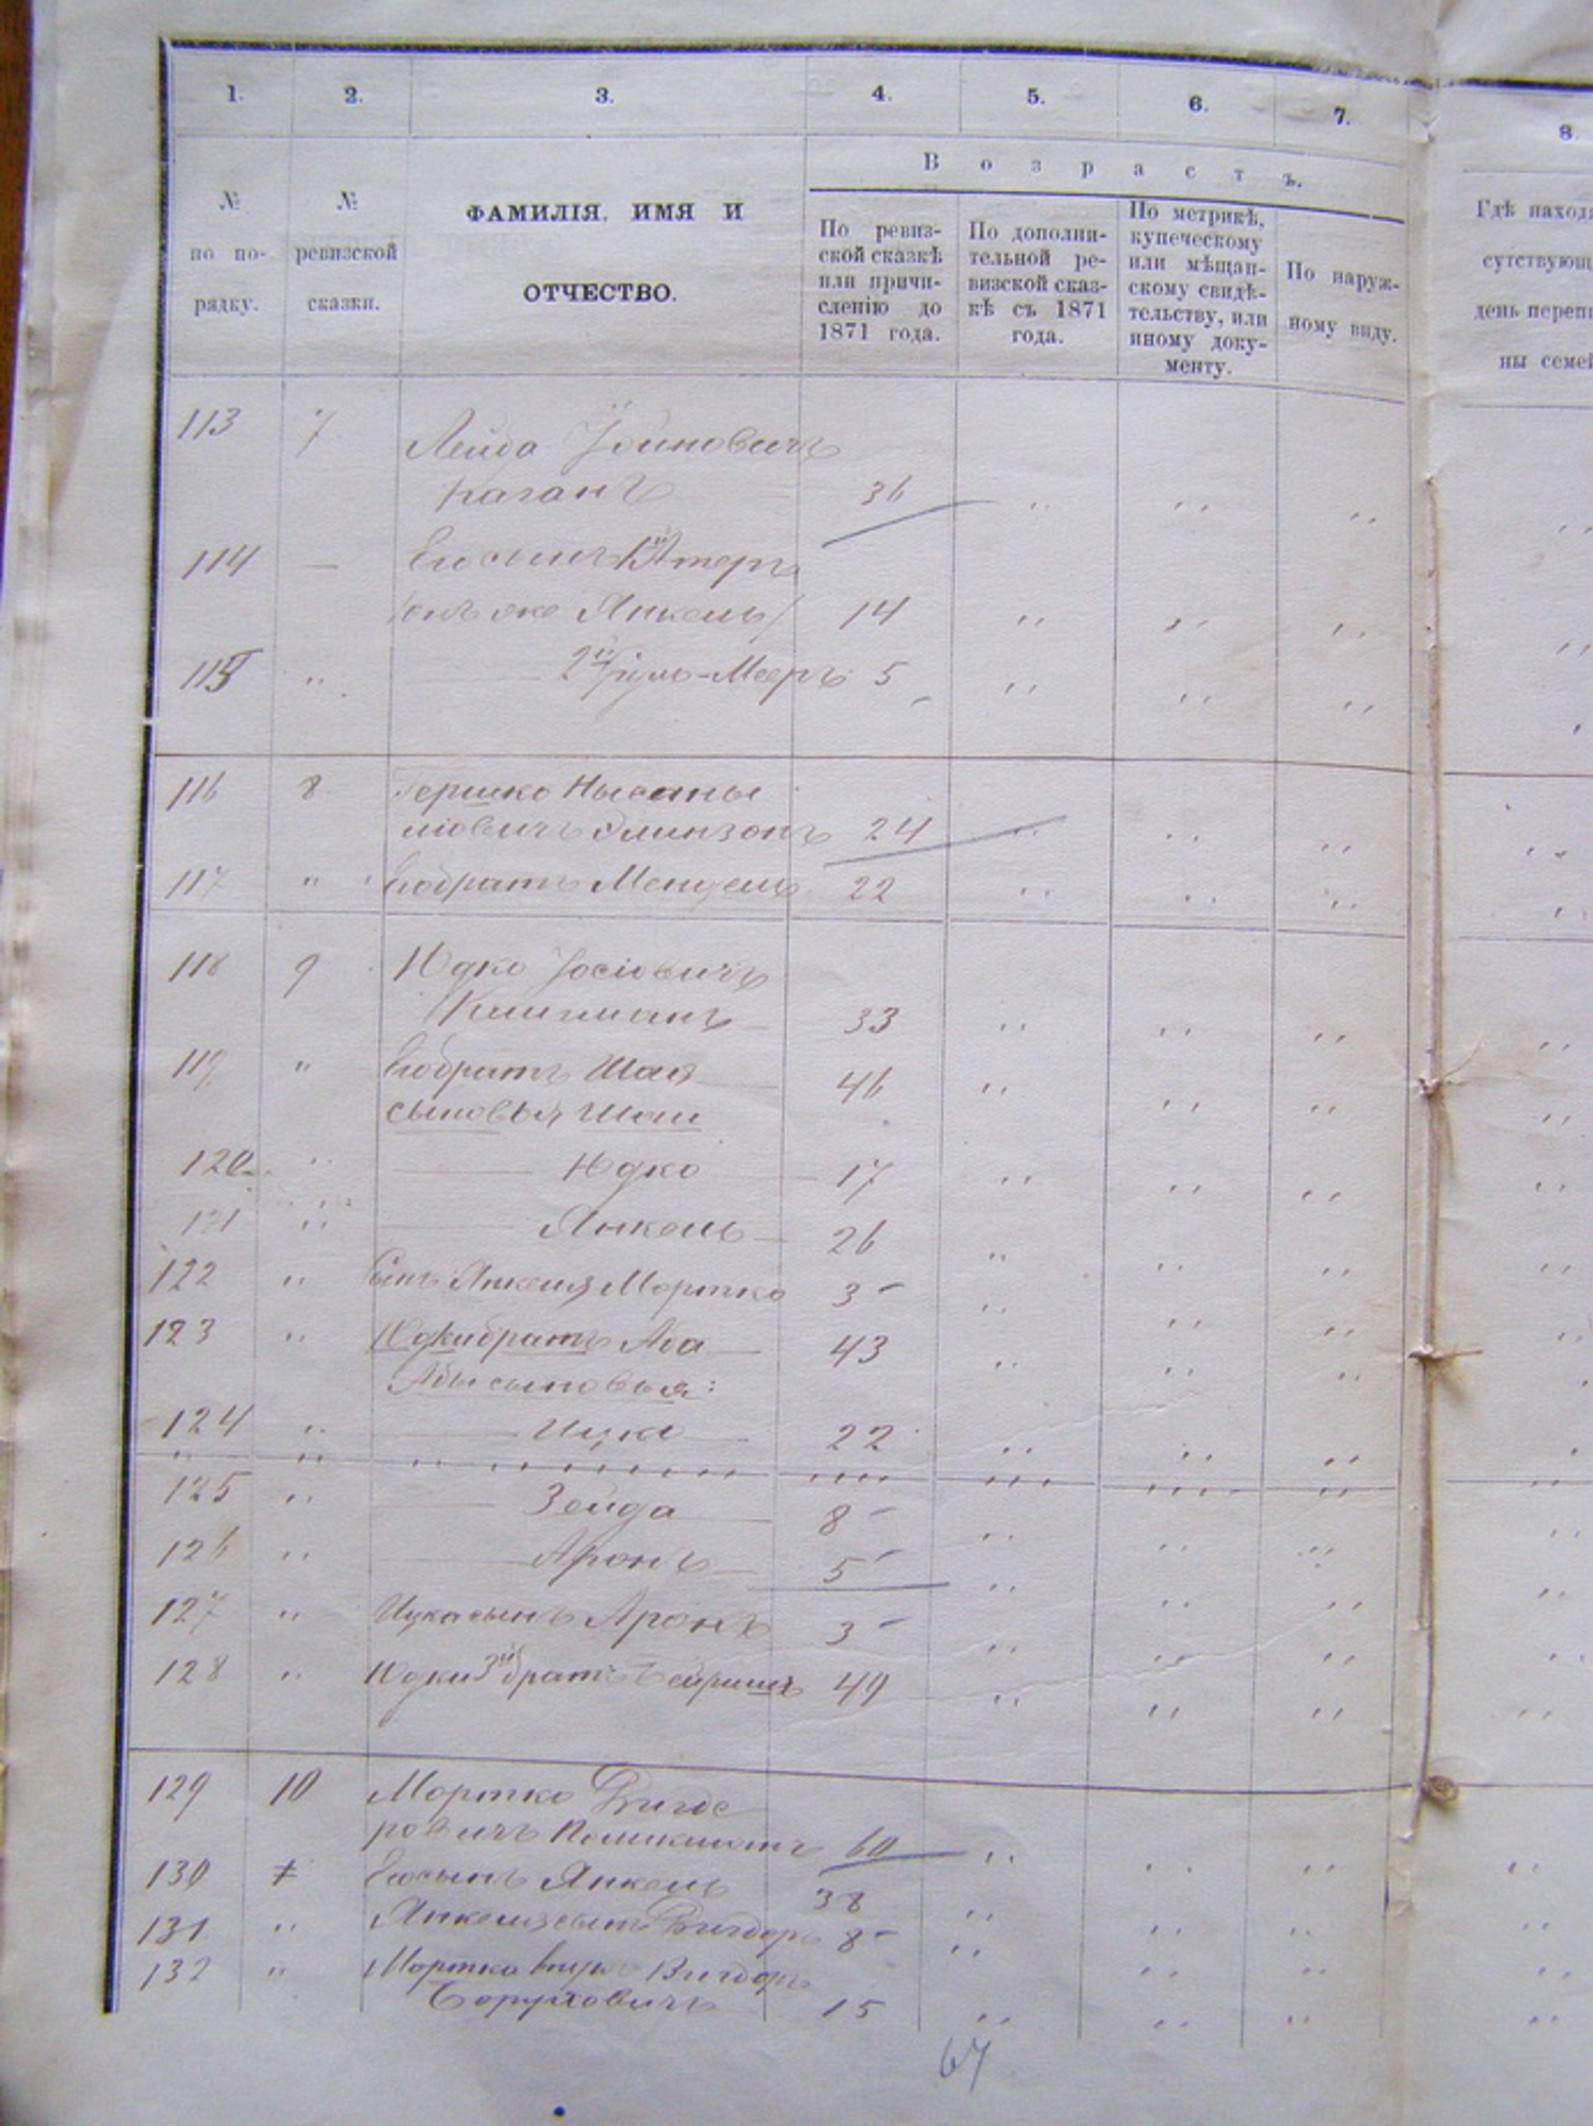 1. 2. 3. 4. 5. 6. 7. 8.
№ по по-рядку.
№ ревизской сказки.
ФАМИЛІЯ, ИМЯ И
ОТЧЕСТВО.
Возрастъ.
По ревиз-
ской сказкѣ
или причи-
сленію до
1871 года.
По дополни-
тельной ре-
визской сказ-
кѣ съ 1871
года.
По метрикѣ,
купеческому
или мѣщан-
скому свидѣ-
тельству, или
иному доку-
менту.
По наруж-
ному виду.
Гдѣ наход
сутствующ
день переп
ны семе
113 7 Лейба
Каганъ 36 „ „ „
114 — Его сынъ 1й
онъ же Янкель 14 „ „ „
115 „ — 2й -Мееръ 5 „ „ „
116 8 Гершко Нысоны
ліовичъ Элинзонъ 24 „ „ „
117 „ Его братъ Мендель 22 „ „ „
118 9 Юдко Іосіовичъ
33 „ „ „
119 „ Его братъ Шая 46 „ „ „
сыновья Шаи
120 „ — Юдко — 17 „ „ „
121 „ — Янкель — 26 „ „ „
122 „ Сынъ Янкеля Мортко 3 „ „ „
123 „ Юдки братъ Аба — 43 „ „ „
Абы сыновья:
124 „ — Ицка — 22 „ „ „
125 „ — Зейда — 8 „ „ „
126 „ — Аронъ — 5 „ „ „
127 „ Ицка сынъ Аронъ 3 „ „ „
128 „ Юдки 3й братъ 49 „ „ „
129 10 Мортко Вигдо
ровичъ 60 „ „ „
130 Его сынъ Янкель 38 „ „ „
131 „ Янкеля сынъ Вигдоръ 8 „ „ „
132 „ Мортка внукъ Вигдоръ
Боруховичъ 15 „ „ „
67